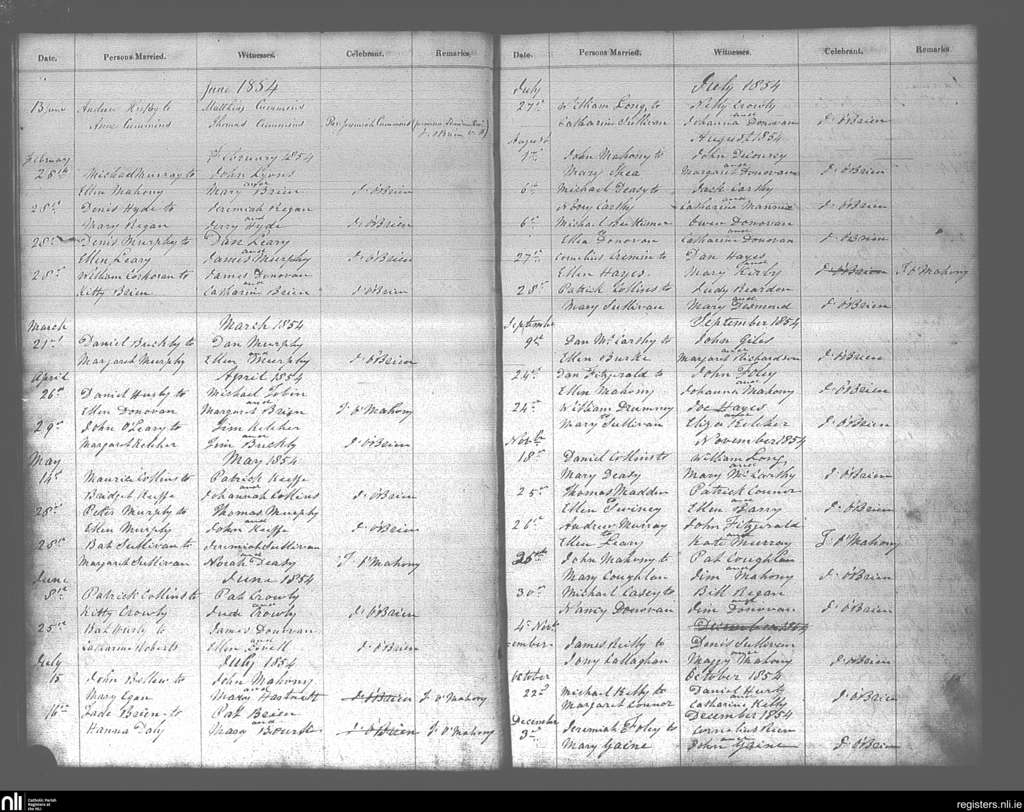 Date. Persons Married. Witnesses. Celebrant. Remarks.
June 1854
13 June Andrew to Matthias Cummins
Anne Cummins Thomas Cummins
February February 1854
25th Michael Murray to John Lyons
and
Ellen Mahony Mary Brien J. O'Brien
28th Denis Hyde to Jeremiah Regan
and
Mary Regan Jerry Hyde J. O'Brien
28th Denis Murphy to Dan Leary
and
Ellen Leary James Murphy J. O'Brien
28th William Corkoran to James Donovan
and
Kitty Brien Catharine Brien J. O'Brien
March March 1854
21st Daniel Buckly to Dan Murphy
Margaret Murphy Ellen Murphy J. O'Brien
April April 1854
26th Daniel to Michael Tobin
and
Ellen Donovan Margaret Brien J. O'Mahony
29th John O'Leary to Jim Keleher
and
Margaret Keleher Jim Buckly J. O'Brien
May May 1854
14th Maurice Collins to Patrick Keeffe
and
Bridget Keeffe Johannah Collins J. O'Brien
28th Peter Murphy to Thomas Murphy
and
Ellen Murphy John Keeffe J. O'Brien
28th Bat Sullivan to Jeremiah Sullivan
and
Margaret Sullivan Norah Deasy J. O'Mahony
June June 1854
8th Patrick Collins to Pat Crowly
and
Kitty Crowly Jude Crowly J. O'Brien
25th Bat to James Donovan
and
Catharine Roberts Ellen J. O'Brien
July July 1854
15 John to John Mahony
and
Mary Egan Mary J. O'Brien J. O'Mahony
16th Brien to Pat Brien
and
Hanna Daly Mary Bourk J. O'Brien J. O'Mahony
Date. Persons Married. Witnesses. Celebrant. Remarks
July July 1854
27th William Long to Nelly Crowly
and
Catharine Sullivan Johanna Donovan J. O'Brien
August August 1854
1st John Mahony to John
and
Mary Shea Margaret Donovan J. O'Brien
6th Michael Deasy to Jack Carthy
and
Carthy Catharine J. O'Brien
6th Michael to Owen Donovan
and
Ellen Donovan Catharine Donovan J. O'Brien
27th Cornelius Cremin to Dan Hayes
and
Ellen Hayes Mary Kirby J. O'Brien J. O'Mahony
28th Patrick Collins to Judy Reardon
and
Mary Sullivan Mary Desmond J. O'Brien
September September 1854
9th Dan McCarthy to John Giles
Ellen Burke Margaret Richardson J. O'Brien
24th Dan Fitzgerald to John Foley
and
Ellen Mahony Johanna Mahony J. O'Brien
24th William Drummy to Joe Hayes
and
Mary Sullivan Eliza Keleher J. O'Brien
Novbr November 1854
18th Daniel Collins to William Long
and
Mary Deasy Mary McCarthy J. O'Brien
25th Thomas Madden Patrick Connor
to and
Ellen Twiney Ellen Barry J. O'Brien
26th Andrew Murray John Fitzgerald
to and
Ellen Leary Kate Murray J. O'Mahony
26th John Mahony to Pat Coughlan
and
Mary Coughlan Jim Mahony J. O'Brien
30th Michael Casey to Bill Regan
and
Nancy Donovan Jim Donovan J. O'Brien
4th Nov December 1854
ember James Reilly to Denis Sullivan
and
Callaghan Maggy Mahony J. O'Brien
October October 1854
22d Michael Kelly to Daniel Hurly
and
Margaret Connor Catharine Kelly J. O'Brien
December December 1854
3rd Jeremiah Foley to Cornelius
and
Mary Gaine John Gaine J. O'Brien
nli Catholic Parish Registers at the NLI
registers.nli.ie